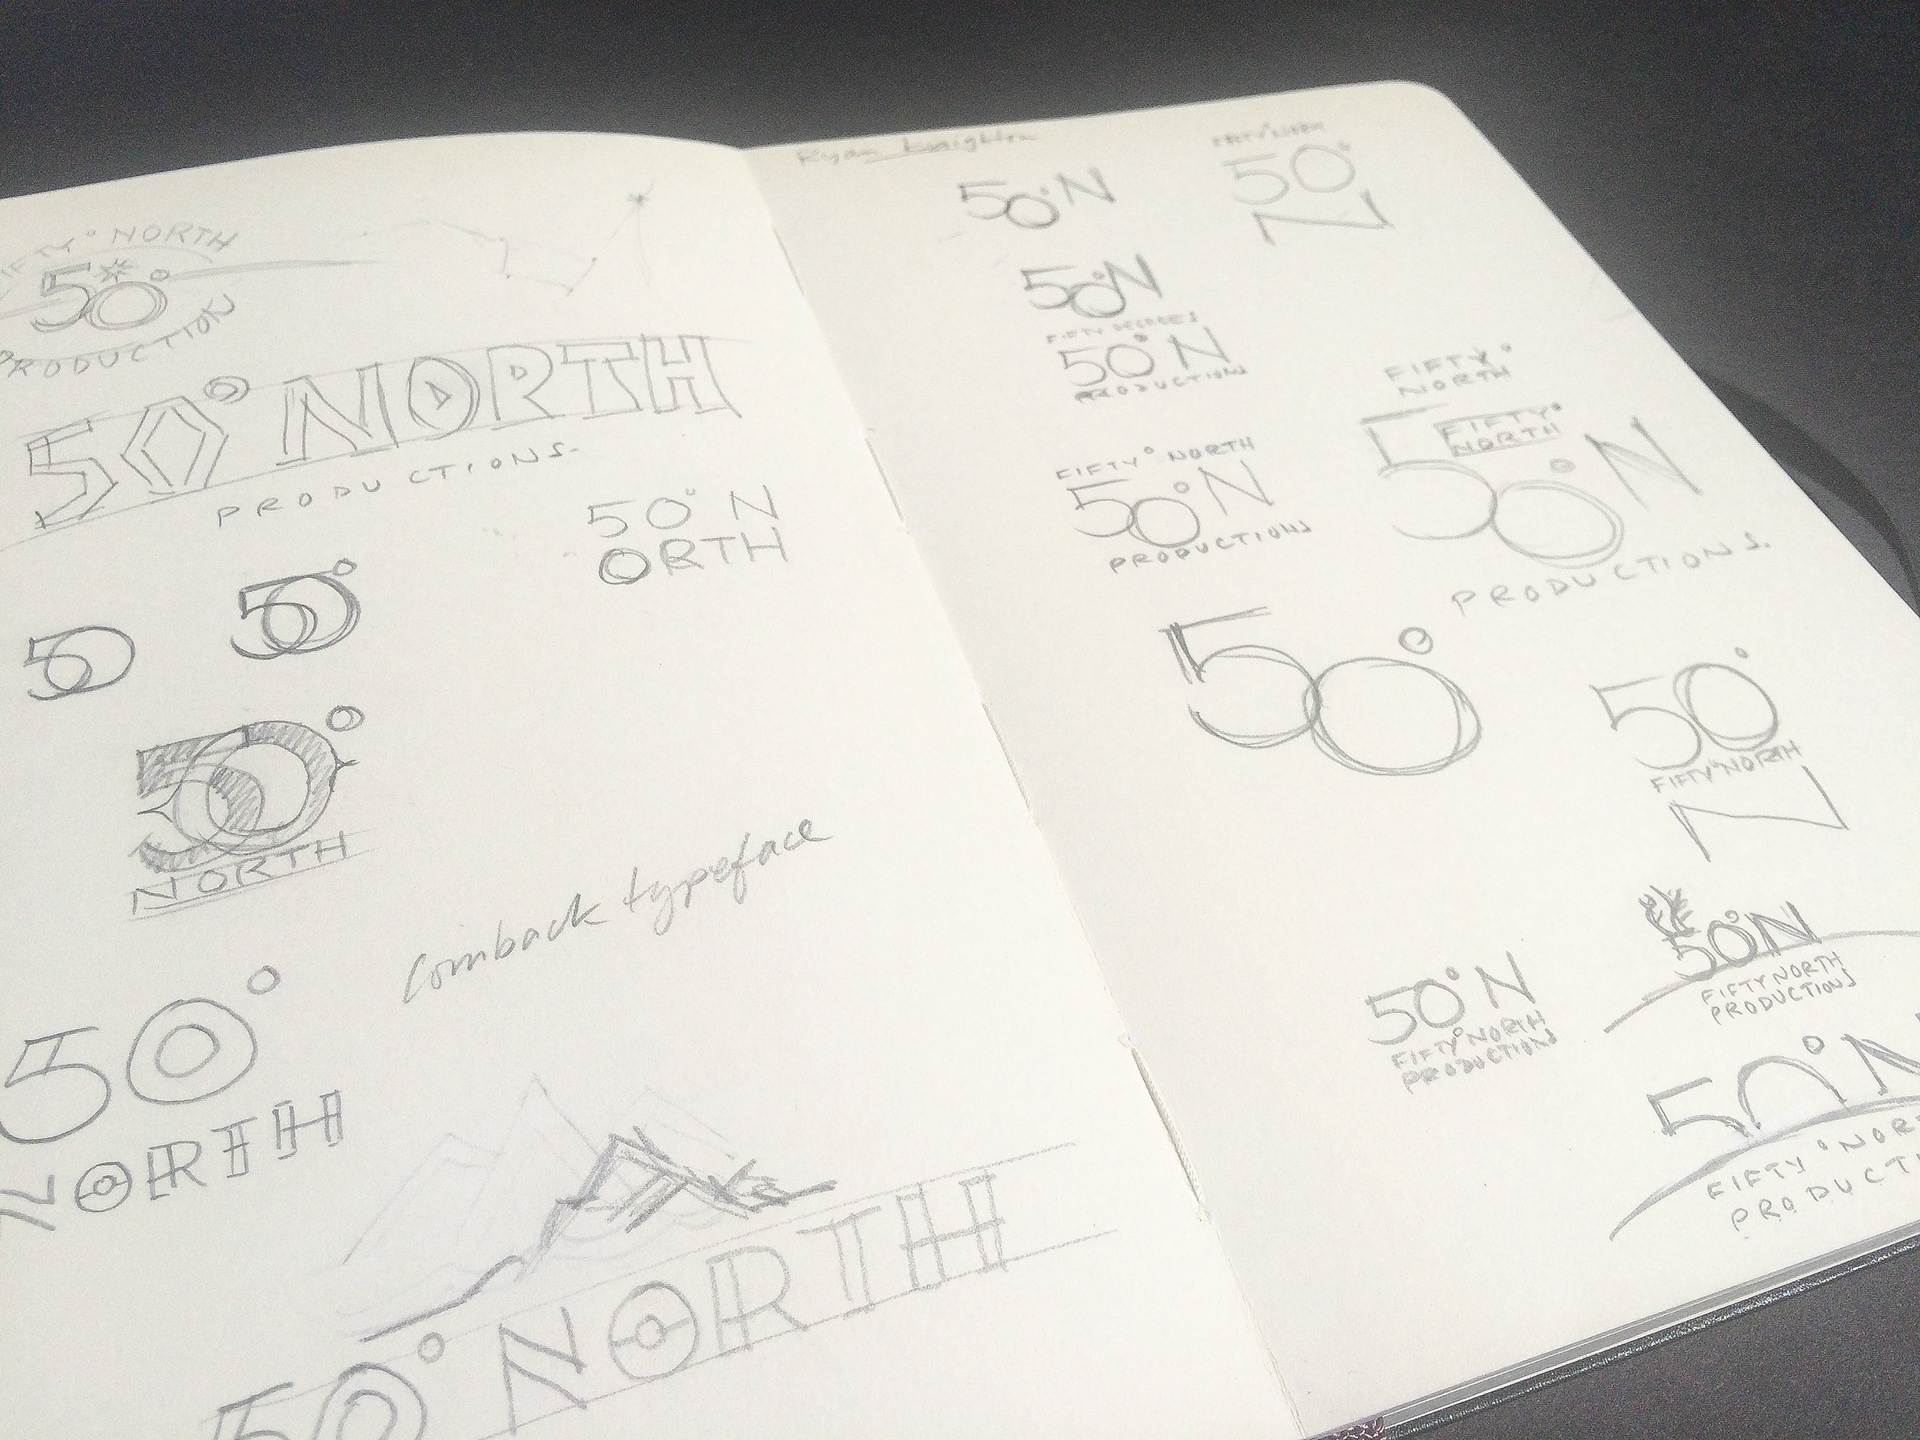 FIFTY° NORTH
50°
PRODUCTION
50° NORTH
PRODUCTIONS.
50° N
ORTH
50
50°
50°
NORTH
Comback typeface
50°
NORTH
50° NORTH
Ryan Knighton
50°N
FIFTY°NORTH
50°
N
50°N
FIFTY DEGREES
50°N
PRODUCTIONS
FIFTY°
NORTH
FIFTY° NORTH
50°N
PRODUCTIONS
FIFTY°
NORTH
50°N
PRODUCTIONS.
50°
50°
FIFTY°NORTH
N
50°N
FIFTY NORTH
PRODUCTIONS
50°N
FIFTY°NORTH
PRODUCTIONS
50°N
FIFTY °NOR
PRODUCTI